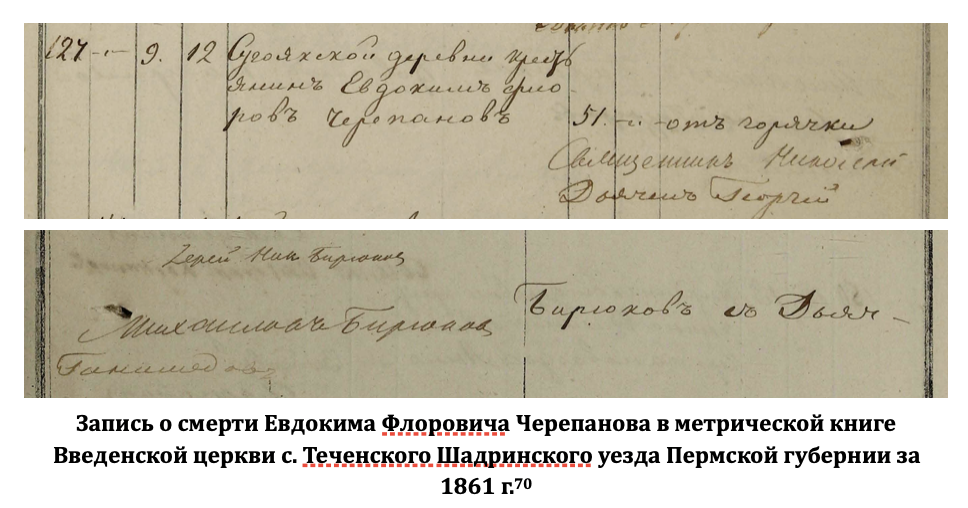 127 9. 12 Сугояхской деревни кресть
янинъ Евдокимъ Фло-
ровъ Черепановъ 51. отъ горячки
Священникъ Николай
Дьячекъ Георгій
Іерей Ник Бирюков
Михаиловъ Бирюков
Бирюковъ съ Дьяч-
Запись о смерти Евдокима Флоровича Черепанова в метрической книге
Введенской церкви с. Теченского Шадринского уезда Пермской губернии за
1861 г.70